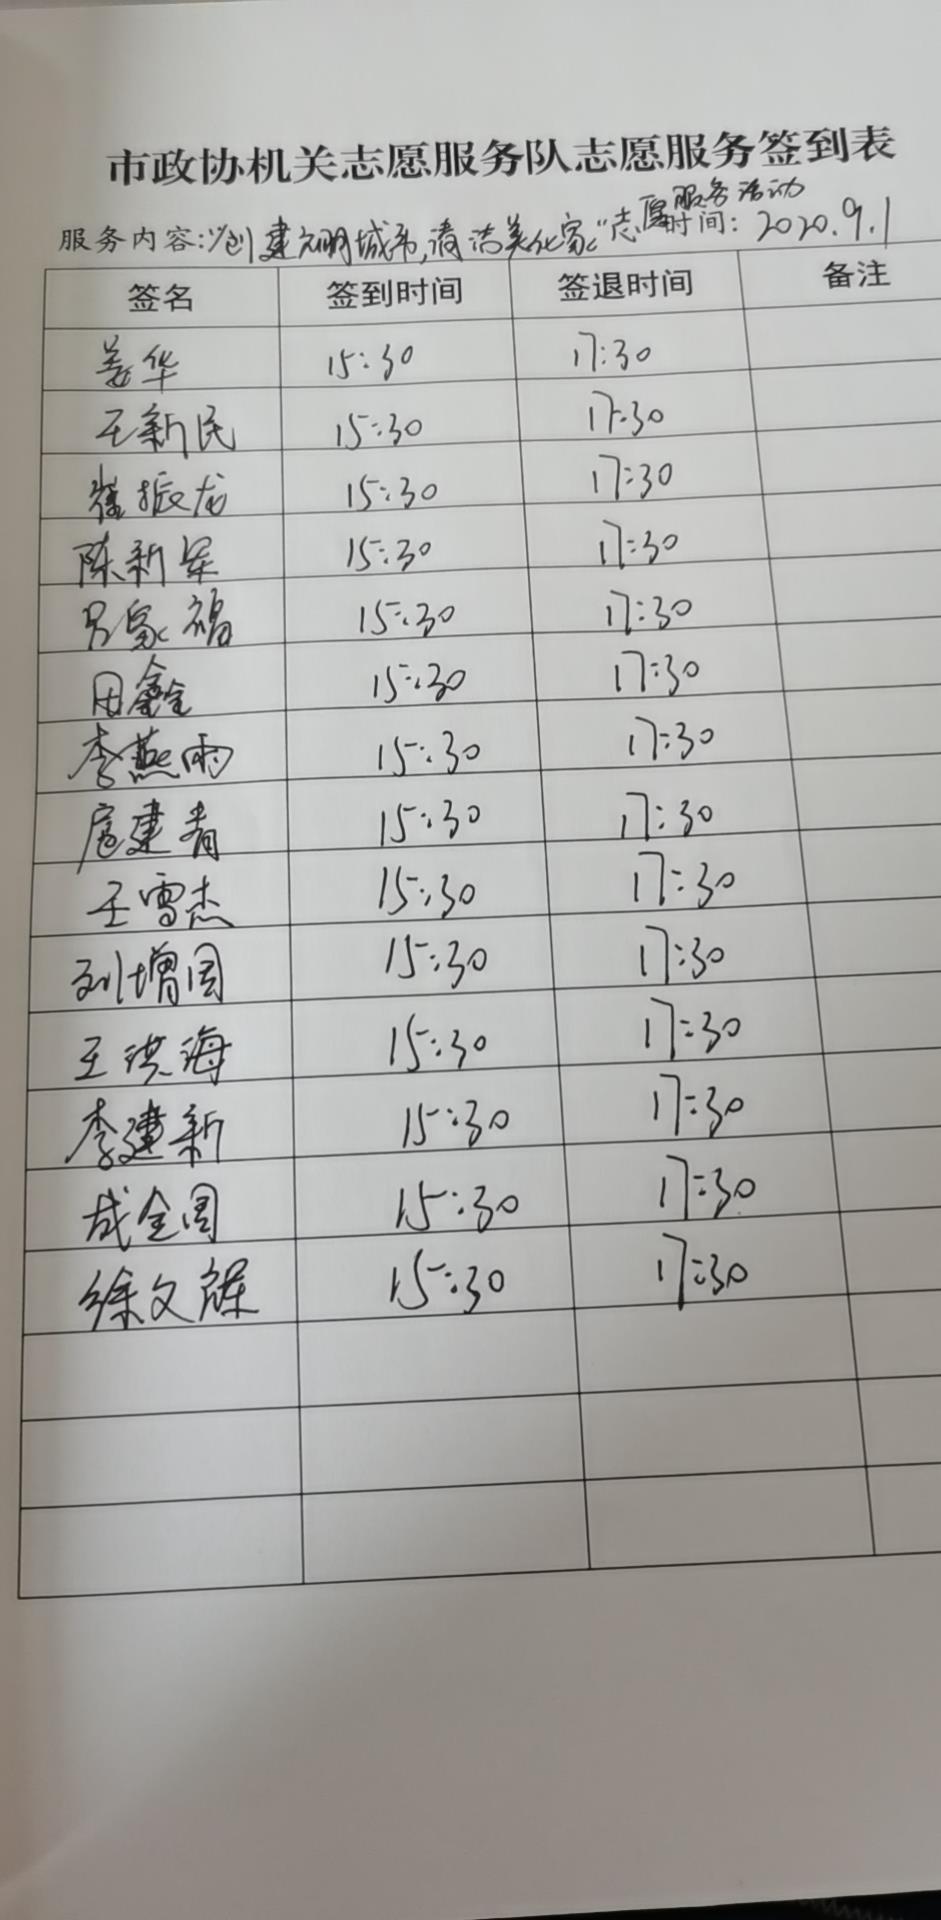 市政协机关志愿服务队志愿服务签到表
服务内容:“创建文明城市,清洁美化家”志愿服务活动 时间: 2020.9.1
签名 签到时间 签退时间 备注
姜华 15:30 17:30
王新民 15:30 17:30
崔振龙 15:30 17:30
陈新军 15:30 17:30
吕家福 15:30 17:30
田鑫 15:30 17:30
李燕雨 15:30 17:30
扈建青 15:30 17:30
王雪杰 15:30 17:30
刘增国 15:30 17:30
王洪海 15:30 17:30
李建新 15:30 17:30
成全国 15:30 17:30
徐文 15:30 17:30